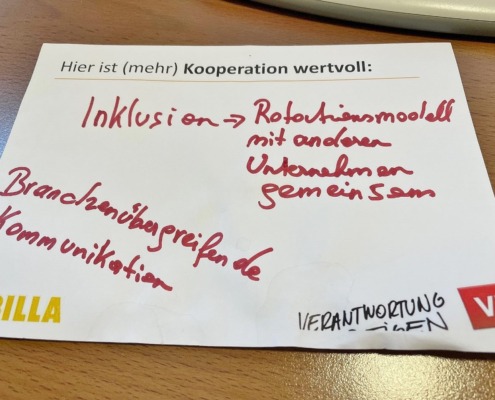 Hier ist (mehr) Kooperation wertvoll:
Inklusion → Rotationsmodell
mit anderen
Unternehmen
gemeinsam
Branchenübergreifende
Kommunikation
BILLA
VERANTWORTUNG
ZEIGEN
V